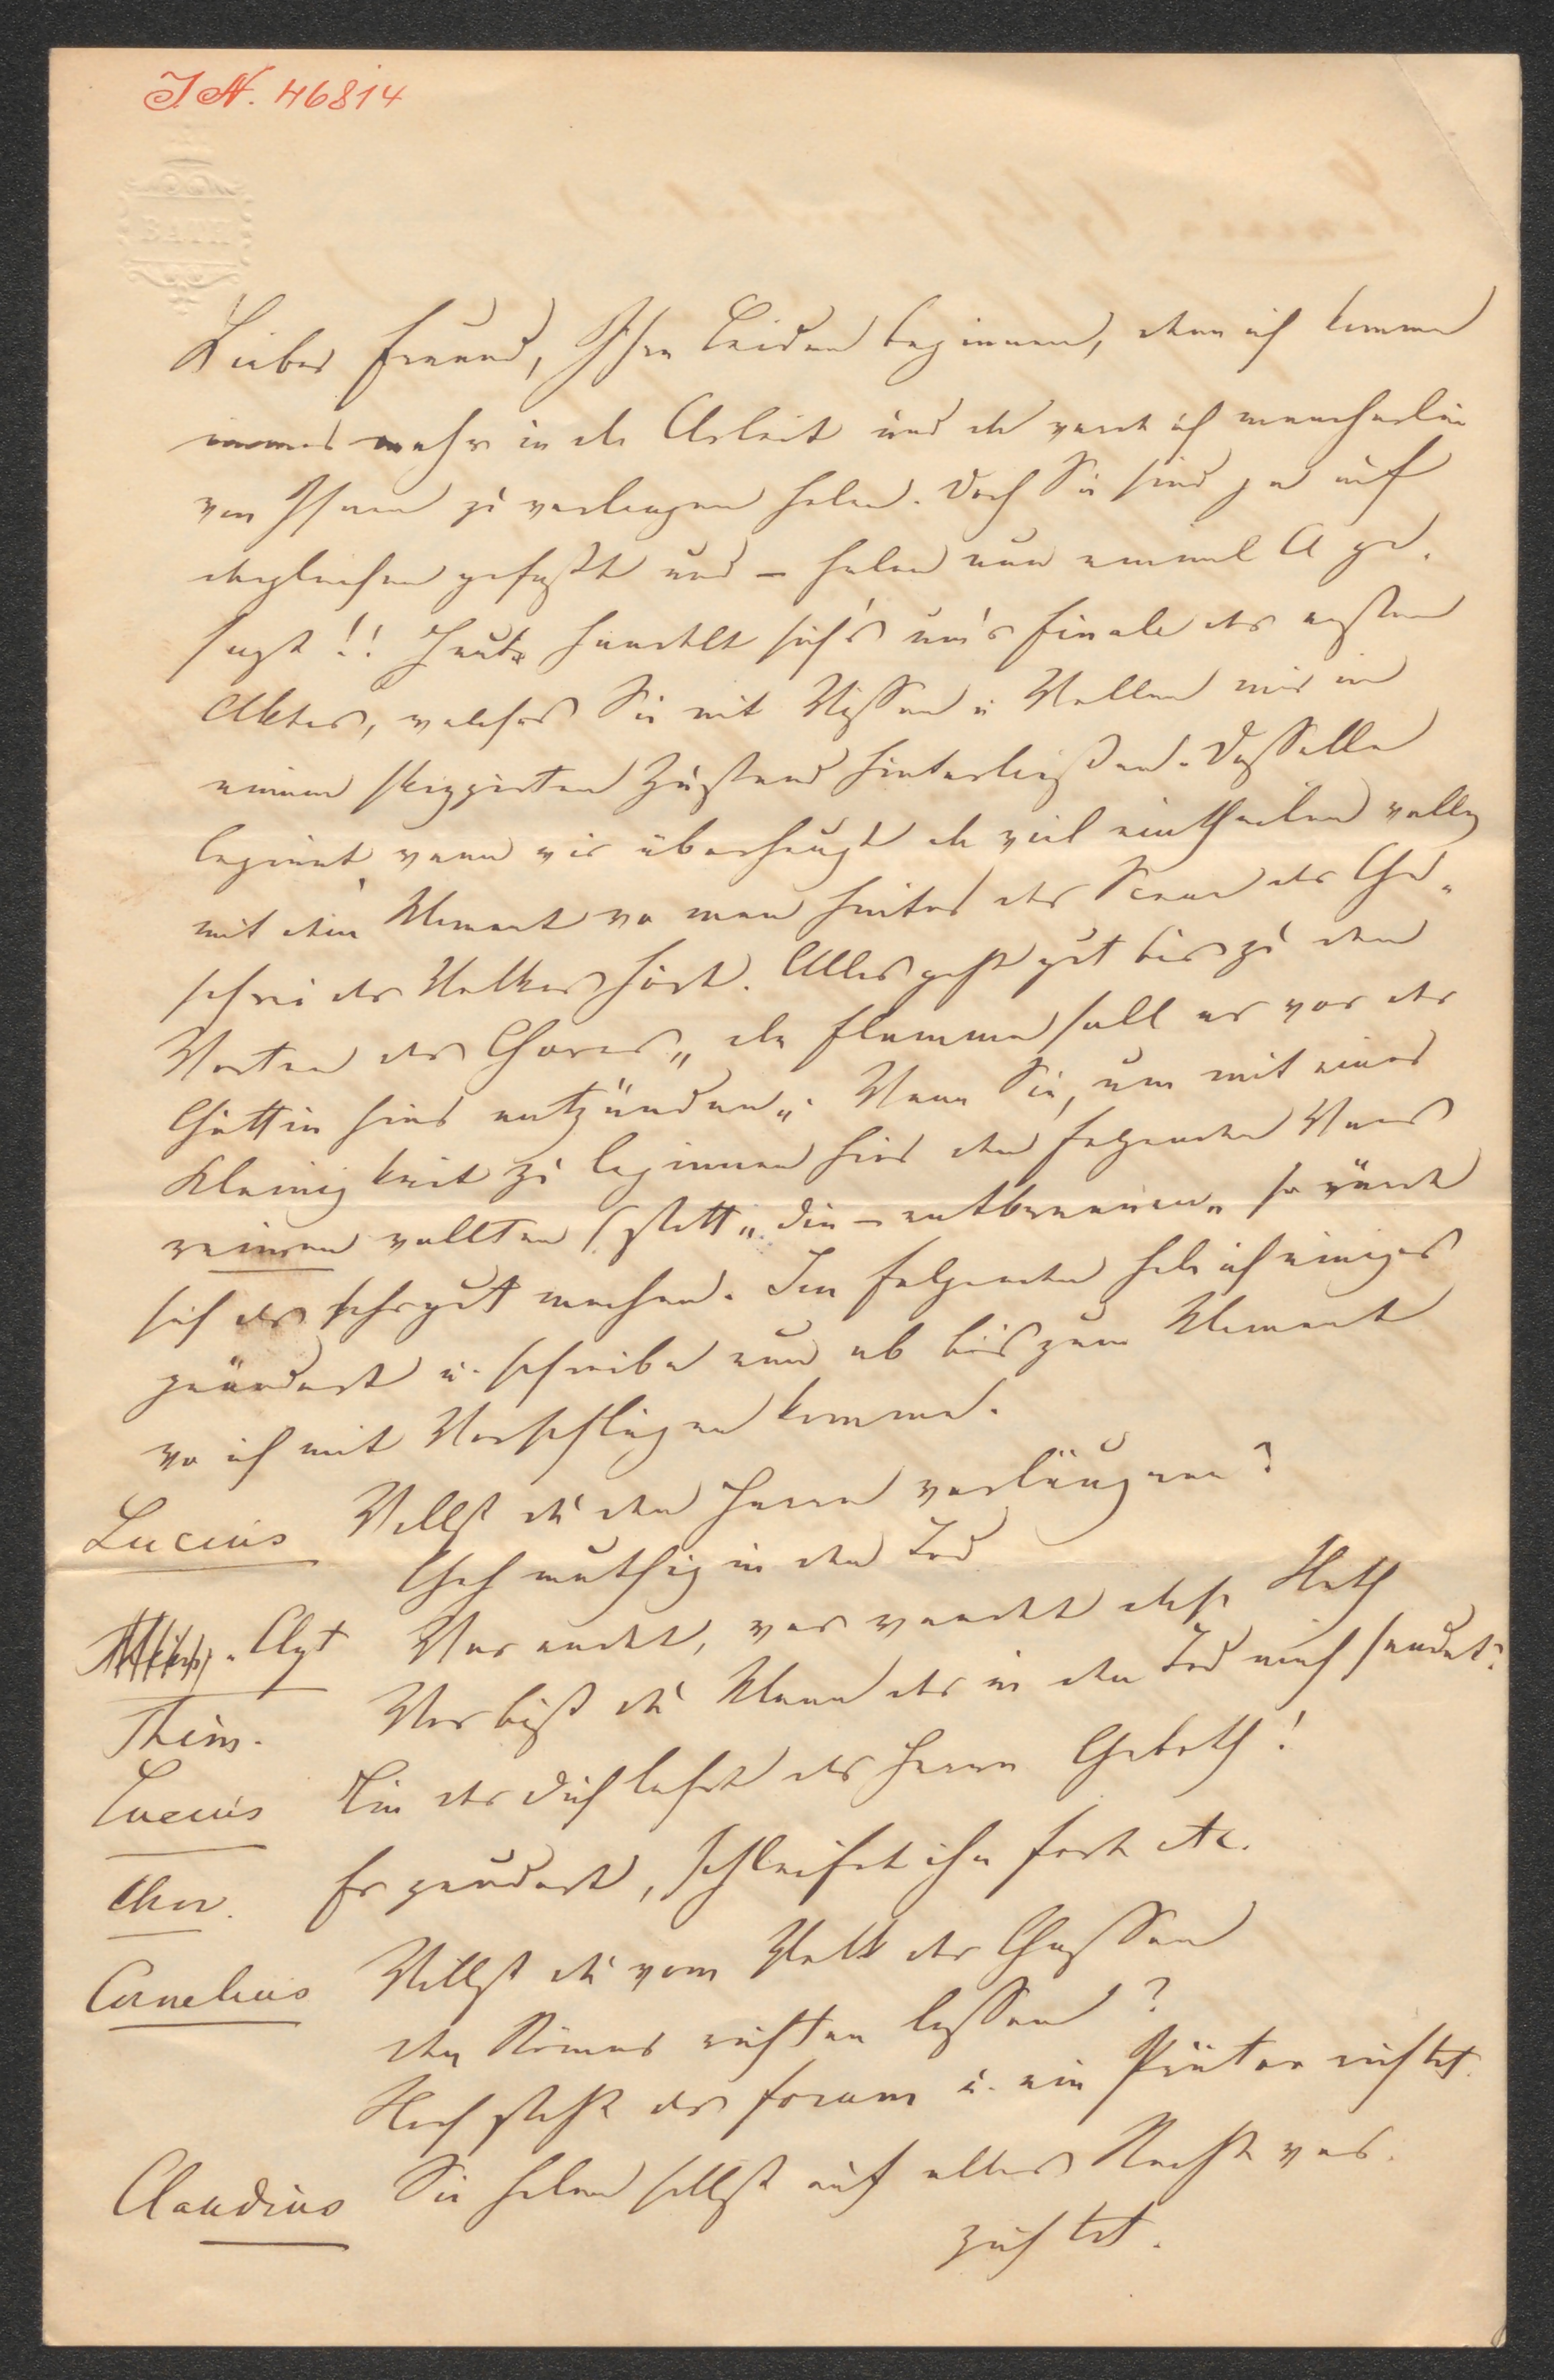 I.N. 46814
BATH
Lieber Freund, Ihre Leiden beginnen, denn ich komme
immer mehr in die Arbeit und da werde ich mancherlei
von Ihnen zu verlangen haben. Doch Sie sind ja auf
dergleichen gefaßt und – haben nun einmal A ge-
sagt!! Heute handelt sich's um's Finale des ersten
Aktes, welches Sie mit Wissen u Wollen mir in
einem skizzirten Zustand hinterließen. Dasselbe
beginnt, wenn wir überhaupt da viel eintheilen wollen
mit dem Moment wo man hinter der Scene das Ge-
schrei des Volkes hört. Alles geht gut bis zu den
Worten des Chores „die Flamme soll er vor der
Göttin hier entzünden“. Wenn Sie, um mit einer
Kleinigkeit zu beginnen hier den folgenden Vers
reimen wollten (statt „die – entbrennen“ so würde
sich das sehr gut machen. Im Folgenden habe ich einiges
geändert u. schreibe nun ab bis zum Moment
wo ich mit Vorschlägen komme.
Lucius Willst du den Herrn verläugnen?
Geh muthig in den Tod
Clyt Wer endet, wer wendet diese Noth
Thim. Wer bist du Mann der in den Tod mich sendet?
Lucius Ein der dich lehrt des Herrn Geboth!
Chor. Er zaudert, schleifet ihn fort etc.
Cornelius Willst du vom Volk der Gassen
den Römer richten lassen?
Noch steht das Forum u. ein Prätor richtet.
Claudius Sie haben selbst auf alles Recht ver-
zichtet.